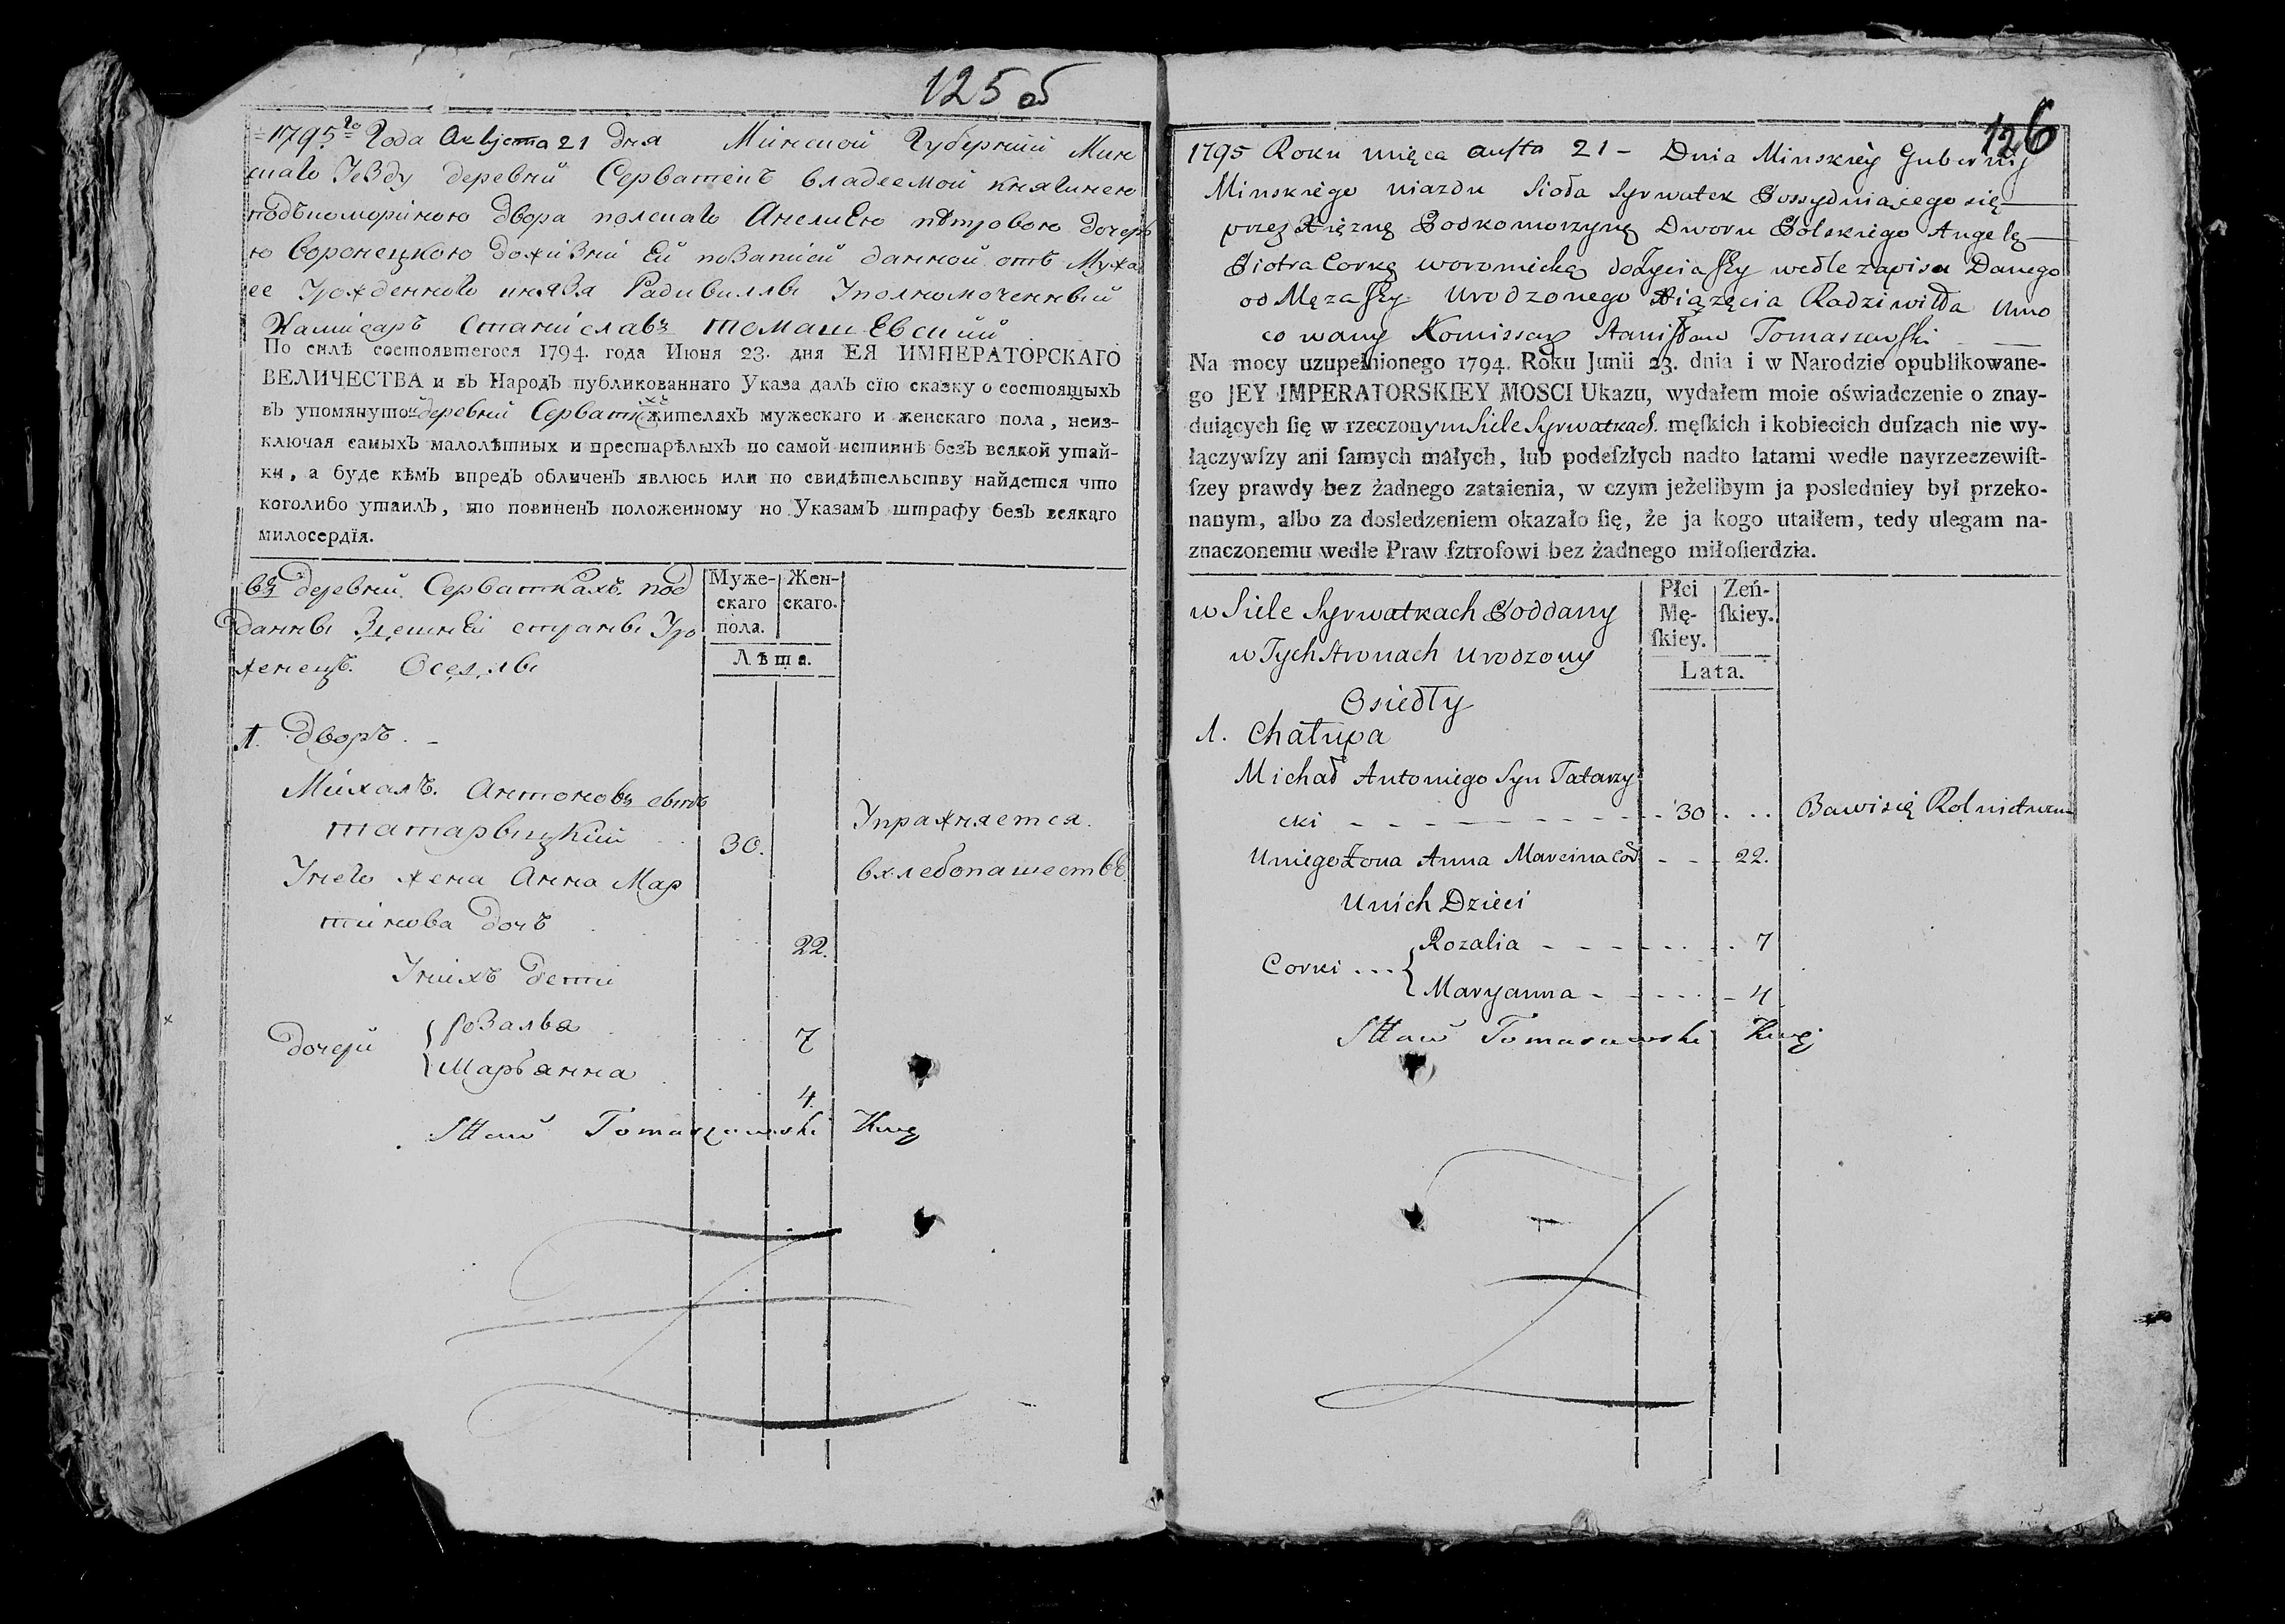 125 об
1795го Года Августа 21 дня Минской Губерний Мин
скаго Уезду деревни Серватенъ владеемой княгинею
подъкомориною двора полскаго Анелиею петровою дочеръ
ю Воронецкою доживнй Ей позаписи данной отъ Мужа
ее Урожденного князя Радивиллы Уполномоченный
Камисаръ Станиславъ томашЕвский
По силѣ состоявшегося 1794. года Июня 23. дня ЕЯ ИМПЕРАТОРСКАГО
ВЕЛИЧЕСТВА и въ Народъ публикованнаго Указа далъ сїю сказку о состоящыхъ
въ упомянутой деревни Серваткахъ жителяхъ мужескаго и женскаго пола, неиз-
ключая самыхъ малолѣтных и престарѣлыхъ по самой истиннѣ безъ всякой утай-
ки, а буде кѣмъ впредъ обличенъ явлюсь или по свидѣтельству найдется что
коголибо утаилъ, то повиненъ положенному по Указамъ штрафу безъ всякаго
милосердїя.
въ деревни Серваткахъ под
данны Здешней страны Уро
женецъ. Оседлы
Муже-
скаго
пола.
Жен-
скаго.
Лѣта.
1. дворъ. -
Михалъ. Антоновъ сынъ
татарыцкий 30. Упражняется.
Унего жена Анна Мар вхлебопашествѣ
тинова дочъ 22.
Унихъ дети
дочери { Розалья 7
{ Марьянна 4.
Sttaw Tomaszewski Kmę
126
1795 Roku mięca Austa 21 - Dnia Minskiey Gubernij
Minskiego uiazdu Sioła Syrwatek Possydniającego się
przez Xięznę Podkomorzynę Dworu Polskiego Angelę
Piotra Corkę woronicką dożycia Jey wedle zapisu Danego
od Męza Jey Urodzonego Xiązęcia Radziwiłła Umo
cowany Komissarz Stanisław Tomaszewski
Na mocy uzupełnionego 1794. Roku Junii 23. dnia i w Narodzie opublikowane-
go JEY IMPERATORSKIEY MOSCI Ukazu, wydałem moie oświadczenie o znay-
duiących się w rzeczonym Siele Syrwatkach. męſkich i kobiecich duſzach nie wy-
łączywſzy ani ſamych małych, lub podeſzłych nadto latami wedle nayrzeczewiſt-
ſzey prawdy bez żadnego zataienia, w czym jeżelibym ja posledniey był przeko-
nanym, albo za dosledzeniem okazało ſię, że ja kogo utaiłem, tedy ulegam na-
znaczonemu wedle Praw ſztrofowi bez żadnego miłoſierdzia.
w Siele Syrwatkach Poddany
w Tych Stronach Urodzony
Osiedły
Płci
Mę-
ſkiey.
Zeń-
ſkiey.
Lata.
1. Chałupa
Michał Antoniego Syn Tatarzy
cki - - - - - - - - - 30 . . . Bawi się Rolnictwem
Uniego Żona Anna Marcina Cór - - - 22.
Unich Dzieci
Corki ... { Rozalia - - - - . . . 7
{ Maryanna - - . . . - 4
Sttaw Tomaszewski Kmę